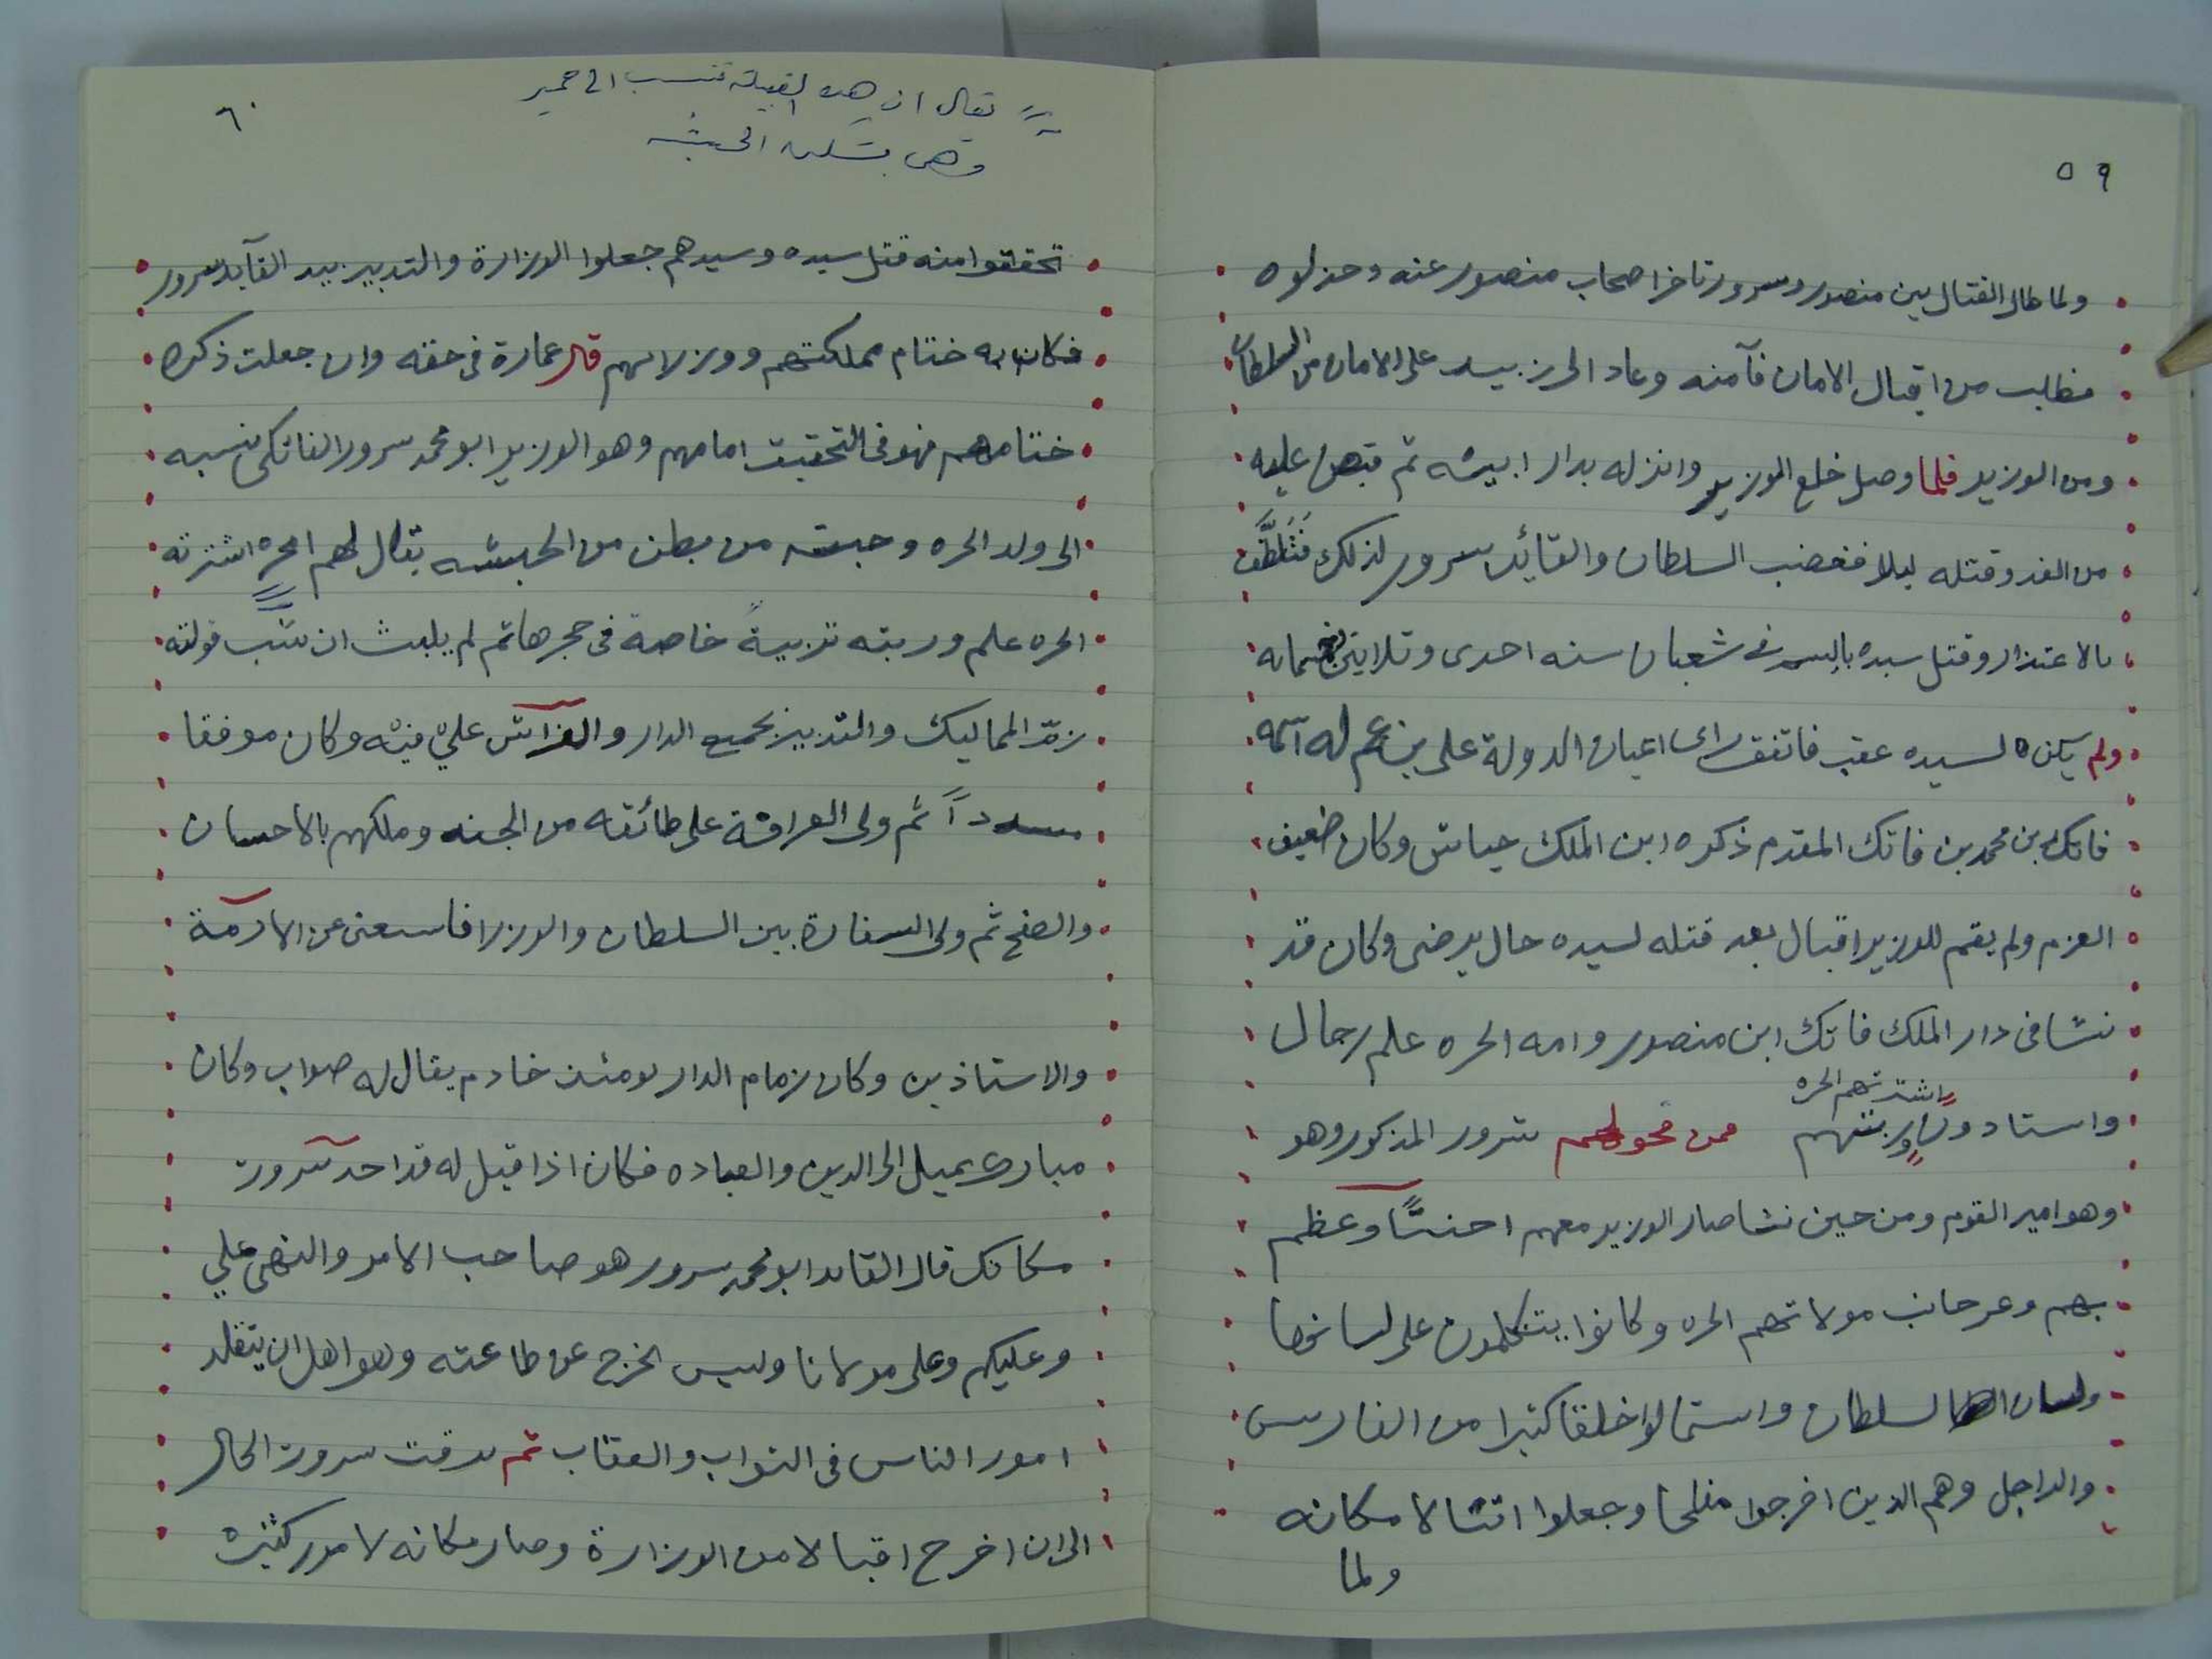 ٥٩
ولما طال القتال بين منصور وسرور تاخر اصحاب منصور عنه وخذلوه
فطلب من اقبال الامان فآمنه وعاد الى زبيد على الامان من السلطان
ومن الوزير فلما وصل خلع الوزير وانزله بدار ابيه ثم قبض عليه
من الغد وقتله ليلا فغضب السلطان والقائد سرور لذلك فتلطف
بالاعتذار وقتل سيده بالسم في شعبان سنه احدى وثلاثين خمسمايه
ولم يكن لسيده عقب فاتفق راى اعيان الدولة على بن عم له اسمه
فاتك بن محمد بن فاتك المقدم ذكره ابن الملك جياش وكان ضعيف
العزم ولم يقم للوزير اقبال بعد قتله لسيده حال يرضى وكان قد
نشا فى دار الملك فاتك ابن منصور وامه الحره علم رجال
واستادون اشترتهم الحره وربتهم ممن فحولهم سرور المذكور وهو
وهو امير القوم ومن حين نشا صار الوزير معهم وعظم
بهم وعز جانب مولاتهم الحره وكانوا يتكلمون على لسانها
ولسان السلطان واستمالوا خلقا كثيرا من الفارس
والراجل وهم الذين اخرجوا مفلحا وجعلوا اقبالا مكانه
ولما
٦٠
يقال ان هذه القبيلة تنسب الى حمير
وهى تسكن الحبشه
تحققوا منه قتل سيده وسيدهم جعلوا الوزارة والتدبير بيد القآيد سرور
فكان به ختام مملكتهم ووزرائهم قال عمارة فى حقه وان جعلت ذكره
ختامهم فهو فى التحقيق امامهم وهو الوزير ابو محمد سرور الفاتكى نسبه
الى ولد الحره وجنسه من بطن من الحبشه يقال لهم امحره اشترته
الحره علم وربته تربيةً خاصة فى حجرها ثم لم يلبث ان شب فولته
زمّ المماليك والتدبير بجميع الدار وكان موفقا
مسدداً ثم ولى العرافة على طائفه من الجند وملكهم بالاحسان
والصفح ثم ولى السفارة بين السلطان والوزرا فاستغنى عن الازمة
والاستاذين وكان زمام الدار يومئذ خادم يقال له صواب وكان
مبارك يميل الى الدين والعباده فكان اذا قيل له قد اخذ سرور
مكانك قال القايد ابو محمد سرور هو صاحب الامر والنهى علي
وعليكم وعلى مولانا وليس الخرج عن طاعته وهو اهل ان يتقلد
امور الناس فى الثواب والعقاب ثم ترقت سرور الحال
الى ان اخرج اقبالا من الوزارة وصار مكانه لامور كثيره